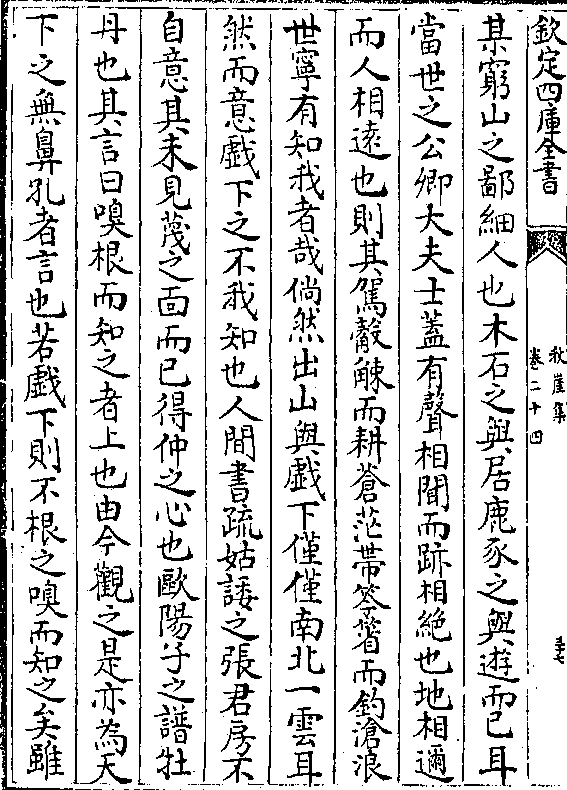 欽定四庫全書
秋崖集
卷二十四
某窮山之鄙細人也木石之與居鹿豕之與遊而已耳
當世之公卿大夫士蓋有聲相聞而跡相絶也地相邇
而人相遠也則其駕觳觫而耕蒼茫帶笭箵而釣滄浪
世寧有知我者哉倘然出山與戲下僅僅南北一雲耳
然而意戲下之不我知也人間書疏姑諉之張君房不
自意其未見蔑之面而已得仲之心也歐陽子之譜牡
丹也其言曰嗅根而知之者上也由今觀之是亦為天
下之無鼻孔者言也若戲下則不根之嗅而知之矣雖